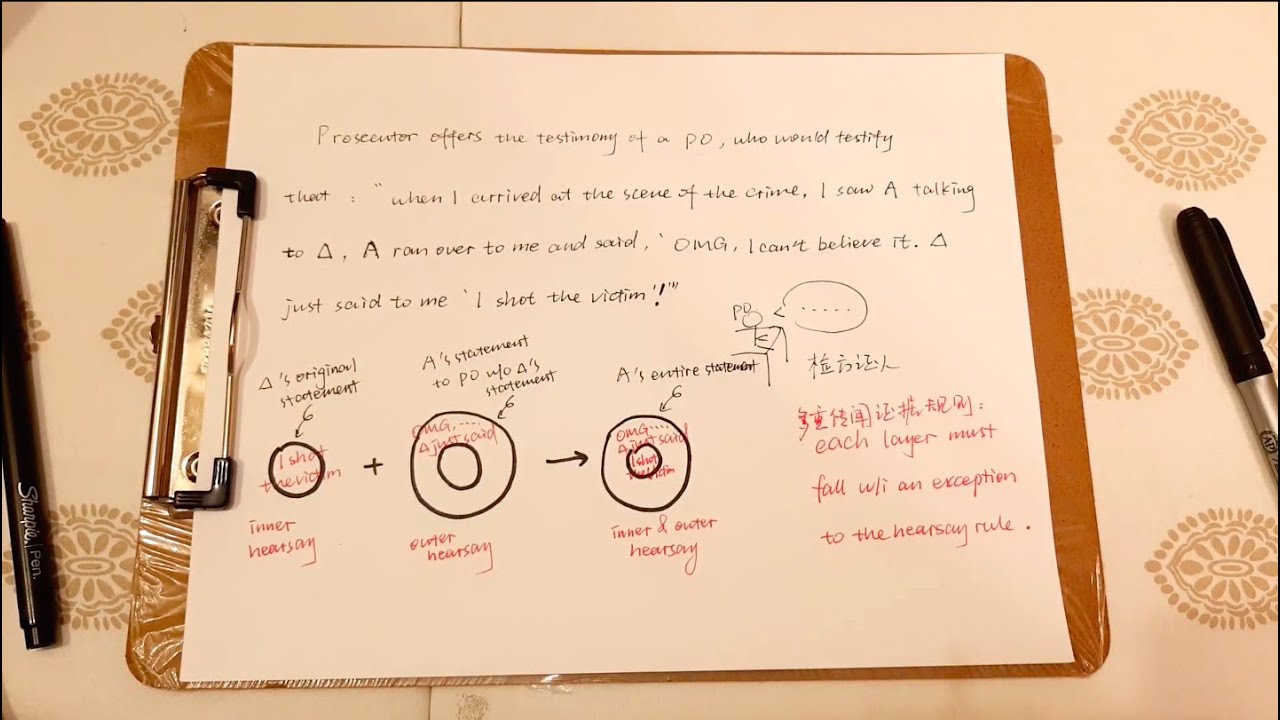 Prosecutor offers the testimony of a PO, who would testify
that : "when I arrived at the scene of the crime, I saw A talking
to Δ, A ran over to me and said, 'OMG, I can't believe it. Δ
just said to me 'I shot the victim'!'"
PO
.....
Δ's original
statement
A's statement
to PO w/o Δ's
statement
A's entire statement
检方证人
I shot
the victim
+
OMG.....
Δ just said
→
OMG.....
Δ just said
I shot
the victim
inner
hearsay
outer
hearsay
inner & outer
hearsay
多重传闻证据规则:
each layer must
fall w/i an exception
to the hearsay rule.
Sharpie. Pen.